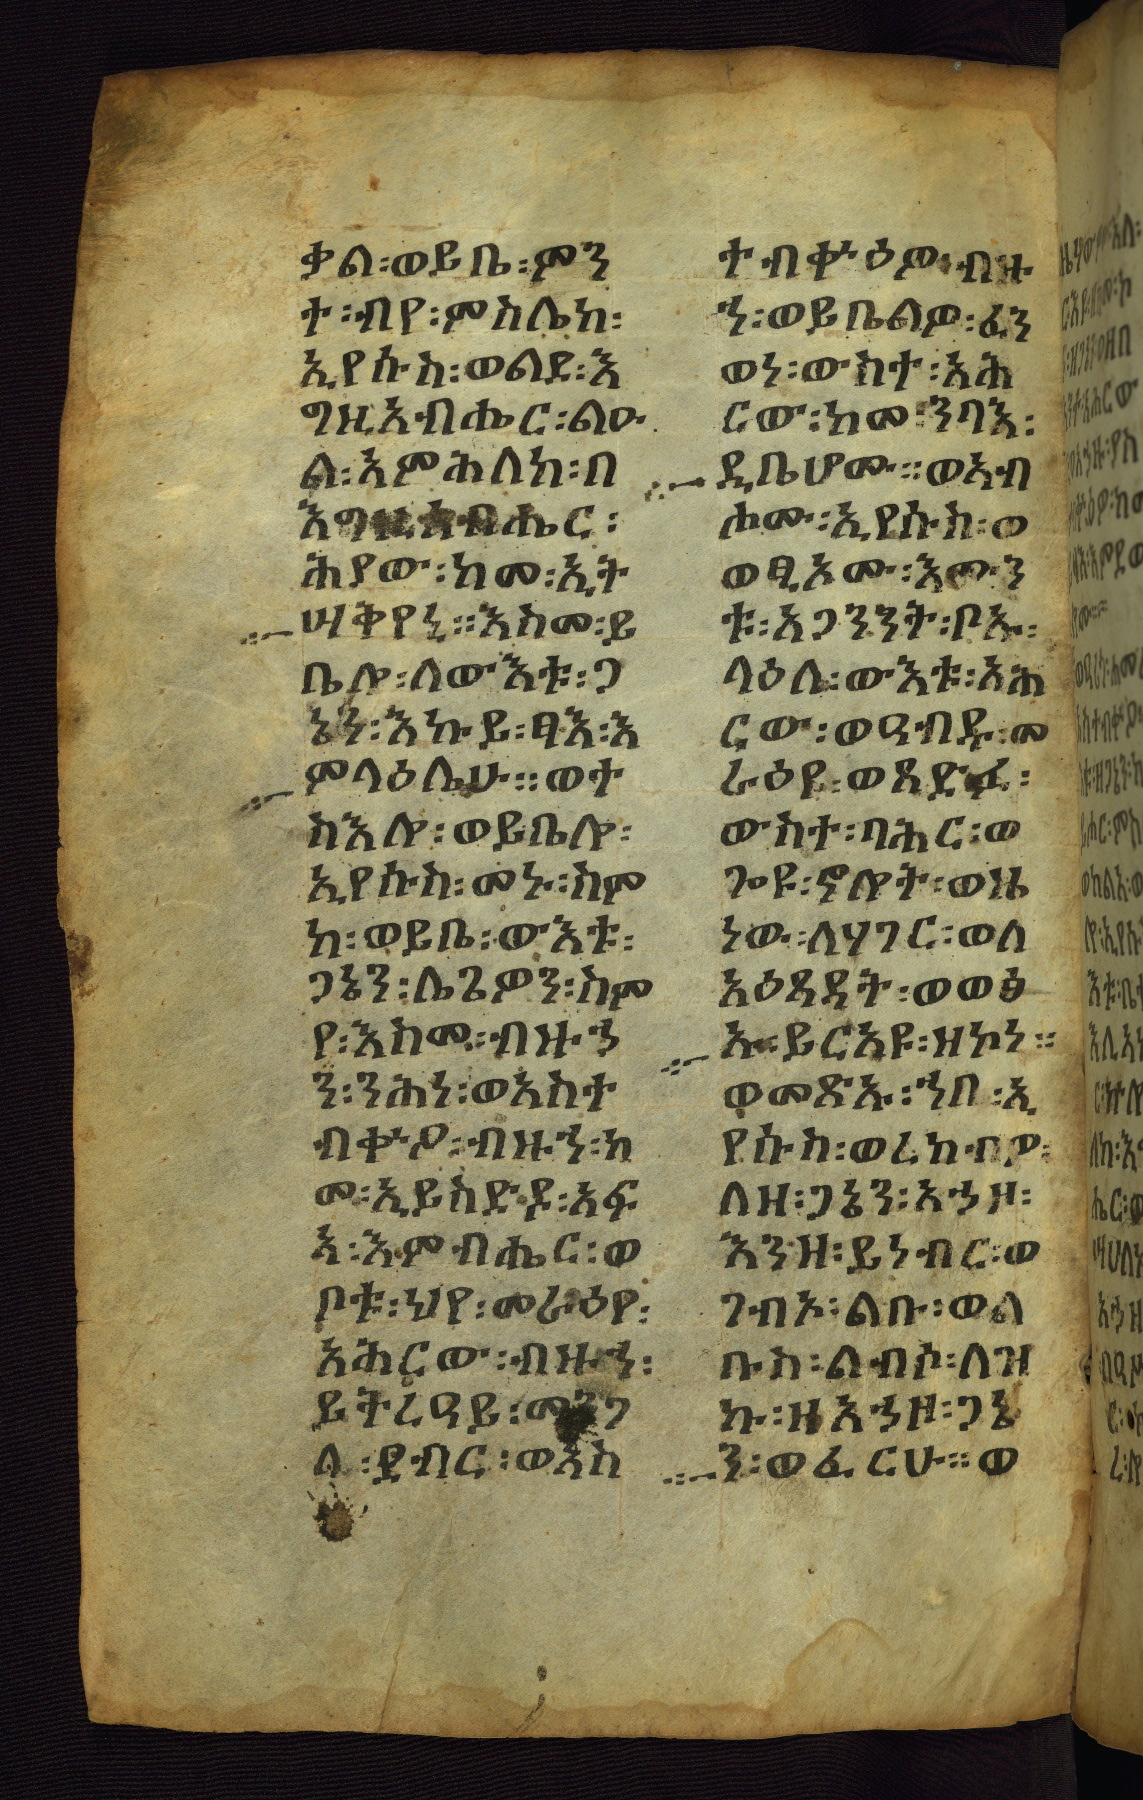 ቃል፡ወይቤ፡ምን
ተ፡ብየ፡ምስሌከ፡
ኢየሱስ፡ወልደ፡እ
ግዚአብሔር፡ልዑ
ል፡አምሕለከ፡በ
እግዚአብሔር፡
ሕያው፡ከመ፡ኢት
ሣቅየኒ፡፡እስመ፡ይ
ቤሎ፡ለውእቱ፡ጋ
ኔን፡እኩይ፡ፃእ፡እ
ምላዕሌሁ፡፡ወተ
ስእሎ፡ወይቤሎ፡
ኢየሱስ፡መኑ፡ስም
ከ፡ወይቤ፡ውእቱ፡
ጋኔን፡ሌጌዎን፡ስም
የ፡እስመ፡ብዙኃ
ን፡ንሕነ፡ወአስተ
ብቍዖ፡ብዙኃ፡ከ
መ፡ኢይስድዶ፡አፍ
አ፡እምብሔር፡ወ
ቦቱ፡ህየ፡መራዕየ፡
አሕርው፡ብዙኃ፡
ይትረዓይ፡መንገ
ለ፡ደብር፡ወአስ
ተብቍዕዎ፡ብዙ
ኃ፡ወይቤልዎ፡ፈን
ወነ፡ውስተ፡አሕ
ርው፡ከመ፡ንባእ፡
ዲቤሆሙ፡፡ወአብ
ሖሙ፡ኢየሱስ፡ወ
ወፂኦሙ፡እሙን
ቱ፡አጋንንት፡ቦኡ፡
ላዕለ፡ውእቱ፡አሕ
ርው፡ወዓብዱ፡መ
ራዕይ፡ወጸድፉ፡
ውስተ፡ባሕር፡ወ
ጐዩ፡ኖሎት፡ወዜ
ነው፡ለሃገር፡ወለ
አዕጻዳት፡ወወፅ
ኡ፡ይርአዩ፡ዘኮነ፡፡
ወመጽኡ፡ኀበ፡ኢ
የሱስ፡ወረከብዎ፡
ለዘ፡ጋኔን፡አኃዞ፡
እንዘ፡ይነብር፡ወ
ገብኦ፡ልቡ፡ወል
ቡስ፡ልብሶ፡ለዝ
ኩ፡ዘአኃዞ፡ጋኔ
ን፡ወፈርሁ፡፡ወ